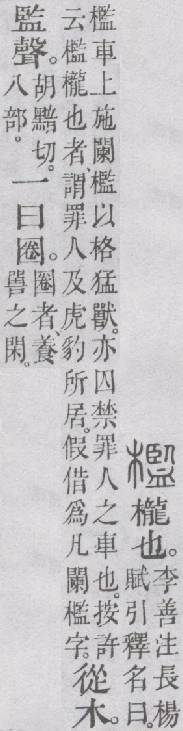 檻
櫳也。
李善注長楊
賦引釋名曰。
檻車上施闌檻以格猛獸。亦囚禁罪人之車也。按許
云檻櫳也者、謂罪人及虎豹所居。假借爲凡闌檻字。
從木。
監聲。
胡黯切。
八部。
一曰圈。
圈者、養
嘼之閑。